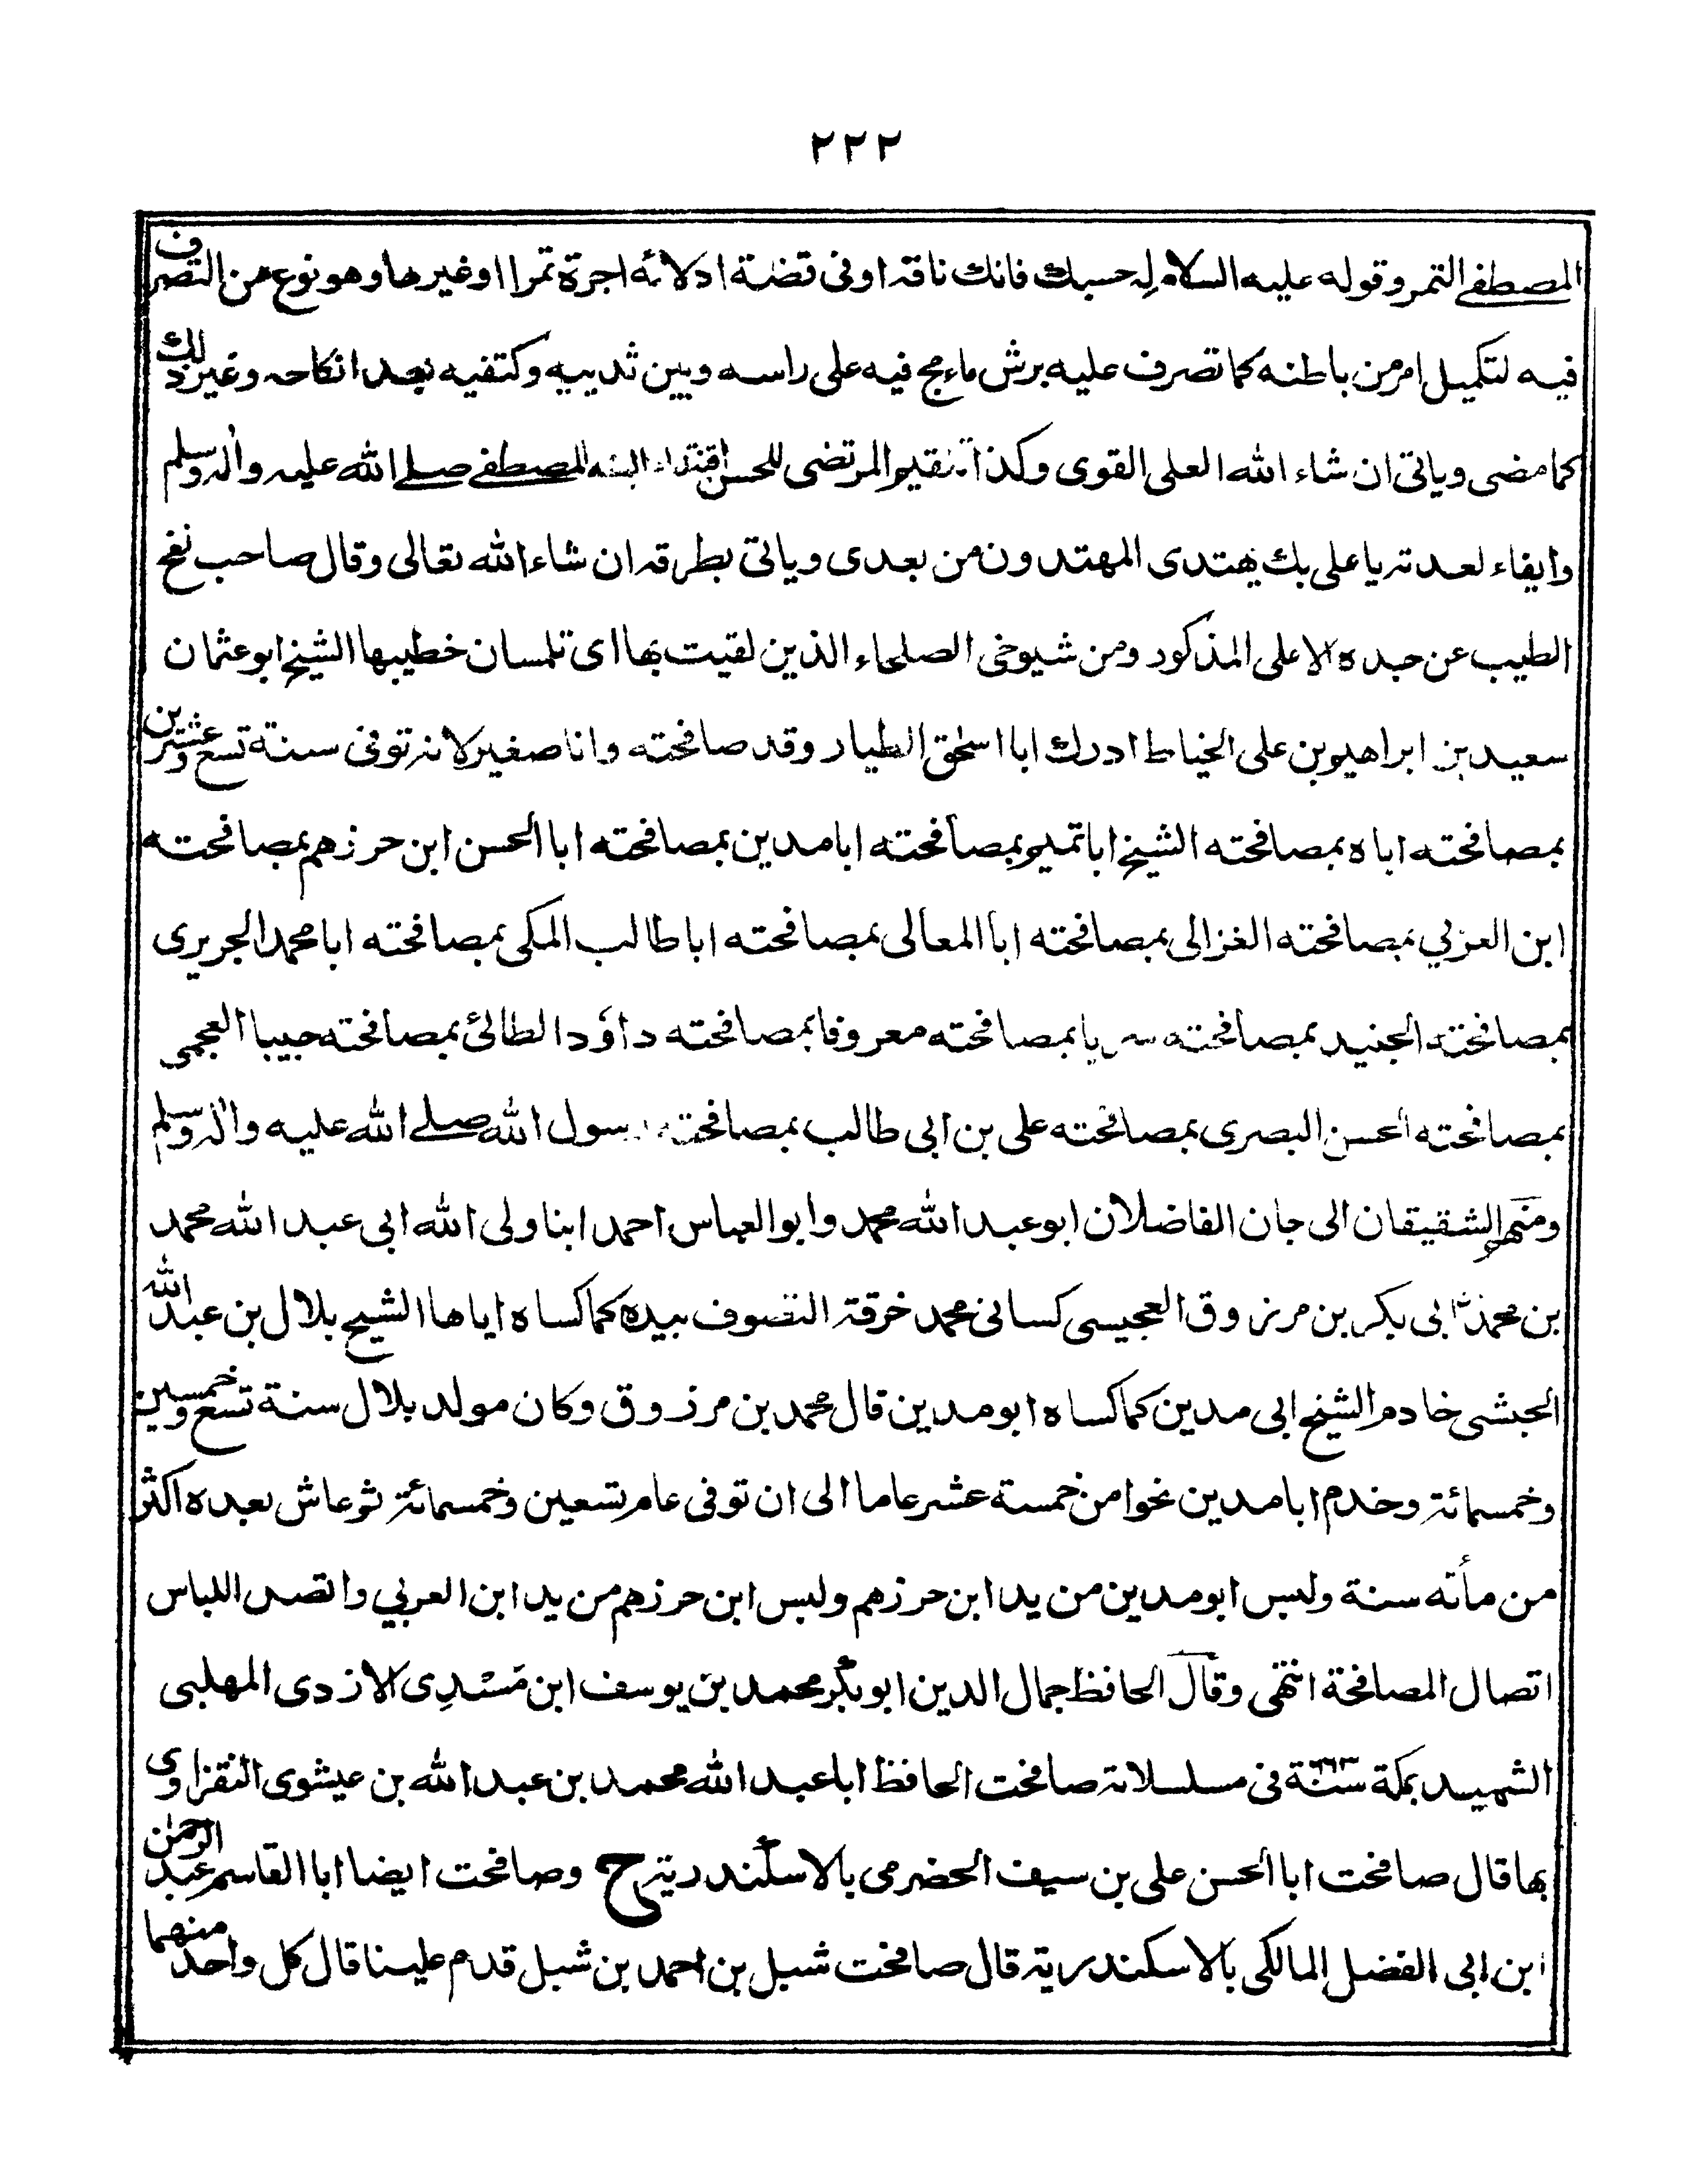 ٢٢٢
المصطفے التمر وقوله عليه السلام له حسبك فانك ناقه اوفى قضية ادلائه اجرة تمرا اوغيرها وهو نوع من التصرف
فيه لتكميل امر من باطنه كما تصرف عليه برش ماء مج فيه على راسه وبين ثدييه وكتفيه بعد انكاحه وغير ذلك
كما مضى وياتى ان شاء الله العلى القوى وكذا تلقيم المرتضى للحسن اقتداء المصطفے صلے الله عليه واله وسلم
وايفاء لعدته يا على بك يهتدى المهتدون من بعدى وياتى بطرقه ان شاء الله تعالى وقال صاحب نفح
الطيب عن جده الاعلى المذكور ومن شيوخى الصلحاء الذين لقيت بها اى تلمسان خطيبها الشيخ ابو عثمان
سعيد بن ابراهيم بن على الخياط ادرك ابا اسحٰق الطيار وقد صافحته وانا صغير لانه توفى سنة تسع وعشرين
بمصافحته اباه بمصافحته الشيخ ابا تميم بمصافحته ابا مدين بمصافحته ابا الحسن ابن حرزهم بمصافحته
ابن العربي بمصافحته الغزالى بمصافحته ابا المعالى بمصافحته ابا طالب المكى بمصافحته ابا محمد الجريرى
بمصافحته الجنيد بمصافحته سريا بمصافحته معروفا بمصافحته داؤد الطائى بمصافحته حبيبا العجمى
بمصافحته الحسن البصرى بمصافحته على بن ابى طالب بمصافحته رسول الله صلے الله عليه واله وسلم
ومنهم الشقيقان الى جان الفاضلان ابو عبد الله محمد وابو العباس احمد ابنا ولى الله ابى عبد الله محمد
بن محمد بن ابى بكر بن مرزوق العجيسى كسانى محمد خرقة التصوف بيده كما كساه اياها الشيخ بلال بن عبد الله
الحبشى خادم الشيخ ابى مدين كما كساه ابو مدين قال محمد بن مرزوق وكان مولد بلال سنة تسع وخمسين
وخمسمائة وخدم ابا مدين نحوا من خمسة عشر عاما الى ان توفى عام تسعين وخمسمائة ثم عاش بعده اكثر
من مأته سنة ولبس ابو مدين من يد ابن حرزهم ولبس ابن حرزهم من يد ابن العربي واتصل اللباس
اتصال المصافحة انتهى وقال الحافظ جمال الدين ابو بكر محمد بن يوسف ابن مَسْدِى الازدى المهلبى
الشهيد بمكة سنة ٦٦٣ فى مسلسلاته صافحت الحافظ ابا عبد الله محمد بن عبد الله بن عيشوى النفزاوى
بها قال صافحت ابا الحسن على بن سيف الحضرمى بالاسكندرية ح وصافحت ايضا ابا القاسم عبد الرحمن
ابن ابى الفضل المالكى بالاسكندرية قال صافحت شبل بن احمد بن شبل قدم علينا قال كل واحد منهما